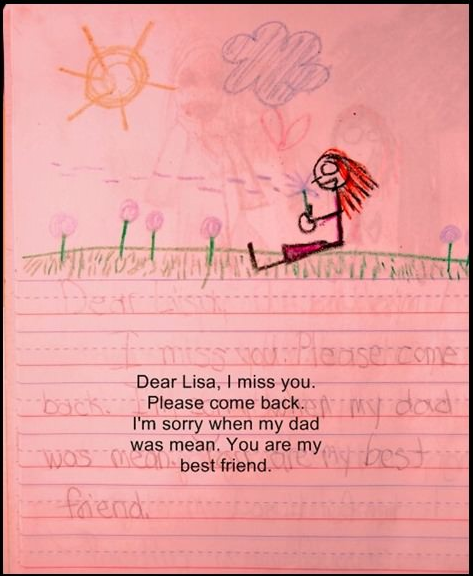 Dear Lisa,
I miss you. Please come
back. I'm sorry when my dad
was mean. You are my best
friend.
Dear Lisa, I miss you.
Please come back.
I'm sorry when my dad
was mean. You are my
best friend.